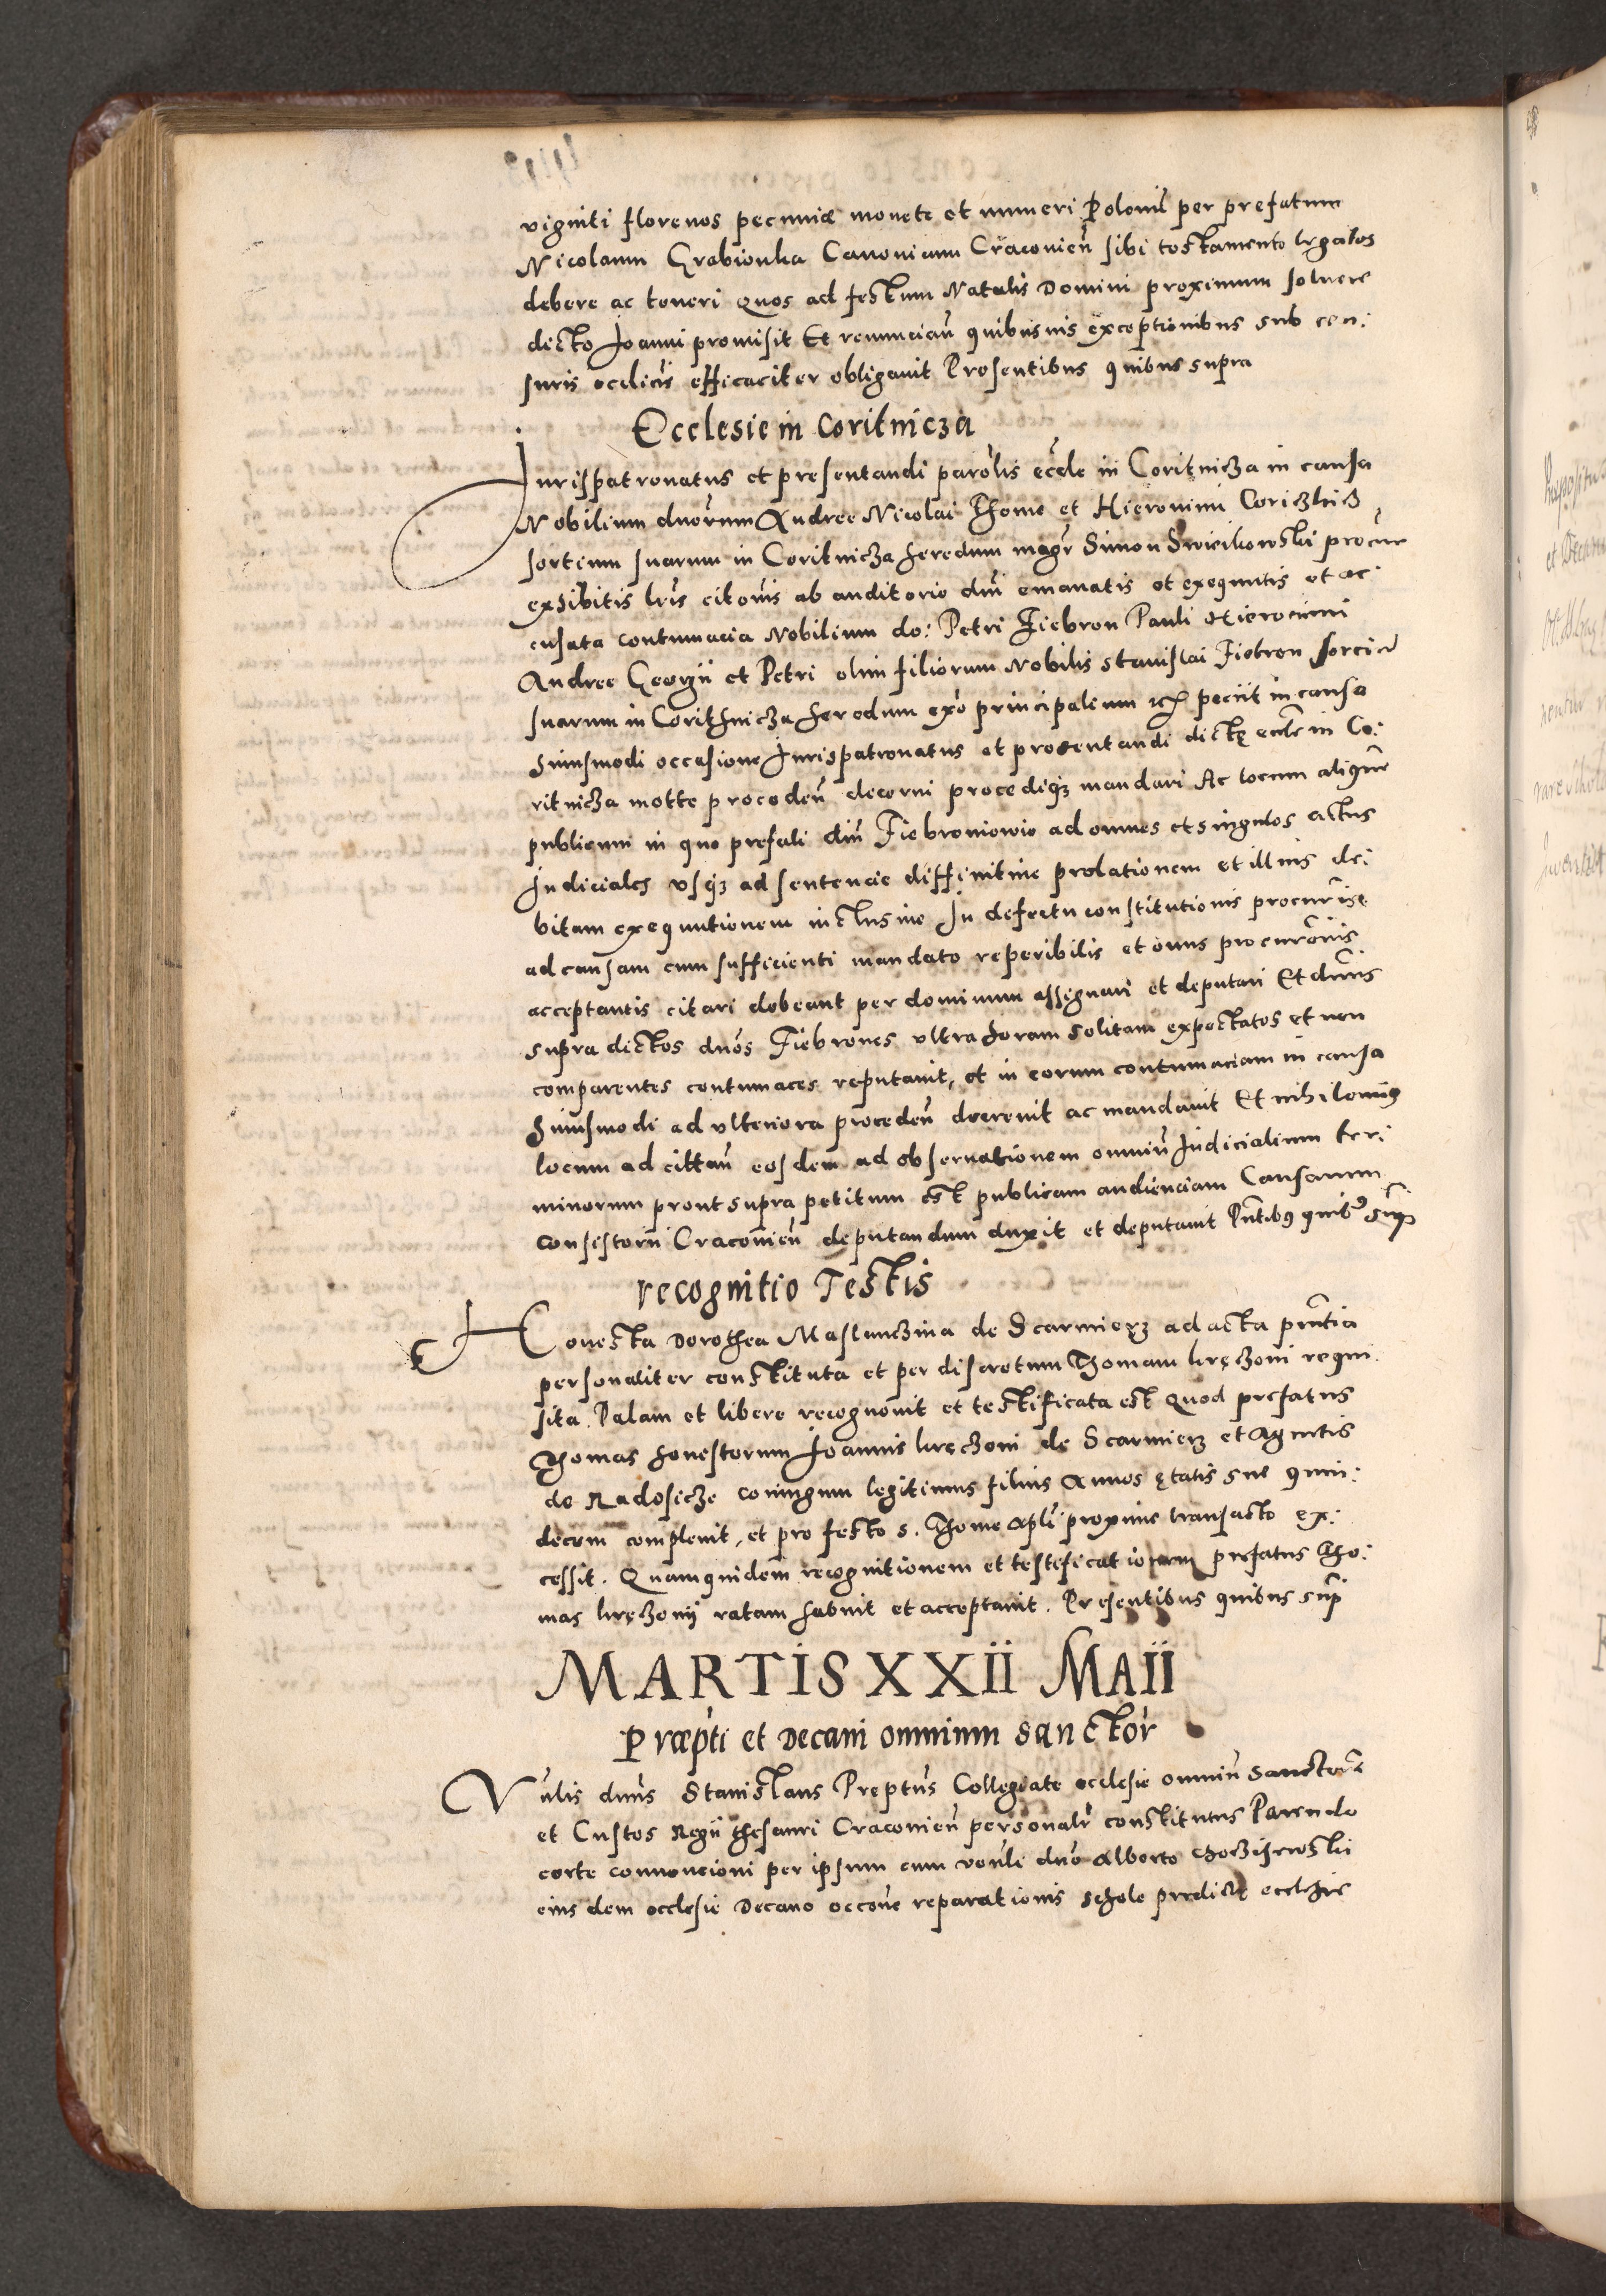 viginti florenos pecuniæ monete et numeri Poloni per prefatum
Nicolaum Grabionka Canonicum Cracovieñ sibi testamento legatos
debere ac teneri Quos ad festum Natalis Domini proximum soluere
dicto Joanni promisit Et renunciañ quibusuis exceptionibus sub cen:
suris ecclicis efficaciter obligauit Presentibus quibus supra
Ecclesie in Coritnicza
Jurispatronatus et presentandi parolis eccle in Coritnicza in causa
Nobilium duorum Andree Nicolai Thome et Hieronimi Coriczkich
sortium suarum in Coritnicza heredum magr Simon procur
exhibitis lris citoriis ab auditorio dni emanatis et exequutis et ac:
cusata contumacia Nobilium do: Petri Fiebron Pauli Hieronimi
Andree Georgii et Petri olim filiorum Nobilis Stanislai Fiebron sorciu
suarum in Corithnicza heredum exo principalium petiit in causa
huiusmodi occasione Jurispatronatus et presentandi dictę eccle in Co:
ritnicza motte procedeñ decerni procediqz mandari Ac locum aliquem
publicum in quo prefati dni Fiebroniowie ad omnes et singulos actus
Judiciales vsqz ad sentencie diffinitiue prolationem et illius de:
bitam exequutionem inclusiue In defectu constitutionis procuris
ad causam cum sufficienti mandato reperibilis et onus procuroriis
acceptantis citari debeant per dominum assignari et deputari Et dnus
supra dictos dnos Fiebrones vltra horam solitam expectatos et non
comparentes contumaces reputauit, et in eorum contumaciam in causa
huiusmodi ad vlteriora procedeñ decreuit ac mandauit Et nihilominus
locum ad cittañ eosdem ad obseruationem omniũ Judicialium ter:
minorum prout supra petitum est publicam audienciam Causarum
Consistorii Cracovieñ deputandum duxit et deputauit Pntibus quibus sup
recognitio Testis
Honesta Dorothea Maslanczina de Scarmierz ad acta pntia
personaliter constituta et per discretum Thomam kręczoni requi:
sita Palam et libere recognouit et testificata est Quod prefatus
Thomas honestorum Joannis kręczoni de Scarmierz et Agnetis
de Radosicze coniugum legitimus filius Annos ętatis sue quin:
decem compleuit, et pro festo s. Thome apli proxime transacto ex:
cessit. Quamquidem recognitionem et testificationem prefatus Tho:
mas kręczonij ratam habuit et acceptauit. Presentibus quibus sup
MARTIS XXII MAII
Præpti et Decani omnium sanctor
Vnlis dnus Stanislaus Preptus Collegiate ecclesie omniũ Sanctor
et Custos Regii thesauri Cracovieñ personalr constitutus Parendo
certe conuencioni per ipsum cum venli dno Alberto
eiusdem ecclesie Decano occone reparationis schole predictę ecclesie